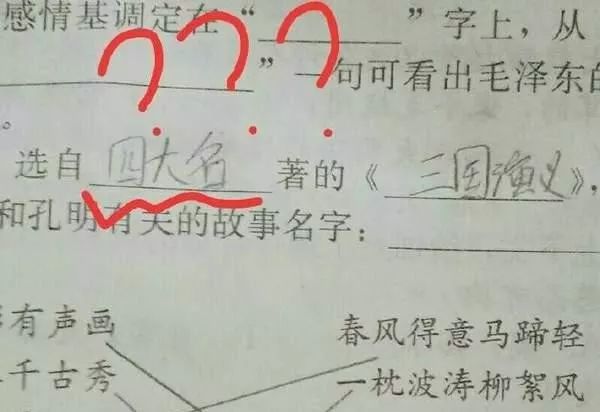 感情基调定在“________”字上，从
________”一句可看出毛泽东的
。
选自 四大名 著的《 三国演义 》，
和孔明有关的故事名字：________
有声画 春风得意马蹄轻
千古秀 一枕波涛柳絮风